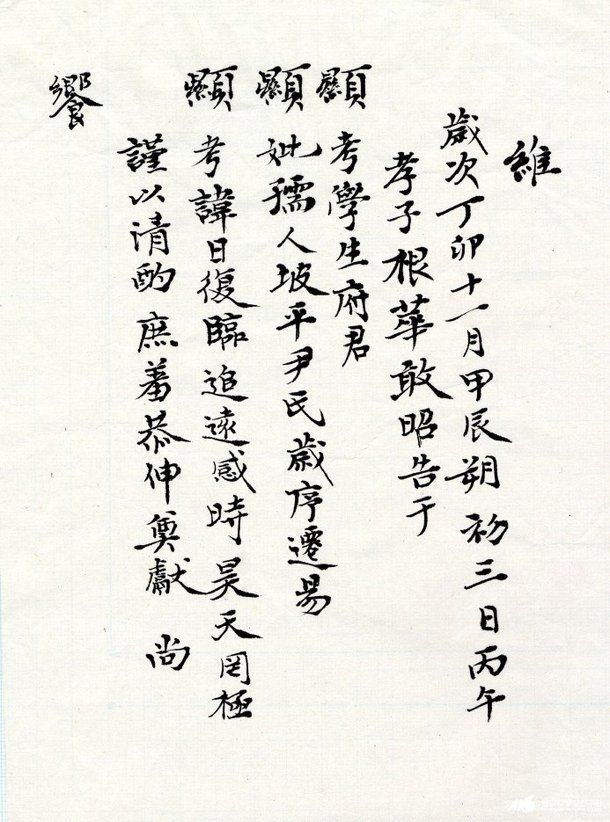 維
歲次丁卯十一月甲辰朔初三日丙午
孝子根華敢昭告于
顯考學生府君
顯妣孺人坡平尹氏歲序遷易
顯考諱日復臨追遠感時昊天罔極
謹以清酌庶羞恭伸奠獻 尚
饗